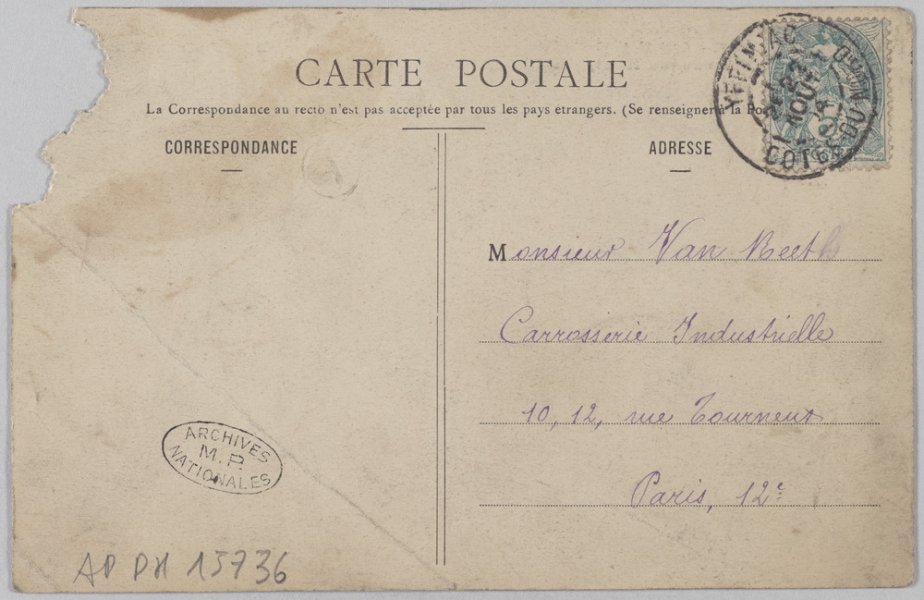 CARTE POSTALE
La Correspondance au recto n'est pas acceptée par tous les pays étrangers. (Se renseigner à la Poste)
CORRESPONDANCE
ADRESSE
COTES-DU-NORD
5
Monsieur Van
Carrosserie Industrielle
10, 12, rue Tourneux
Paris, 12e
ARCHIVES
M. P.
NATIONALES
AD PH 15736